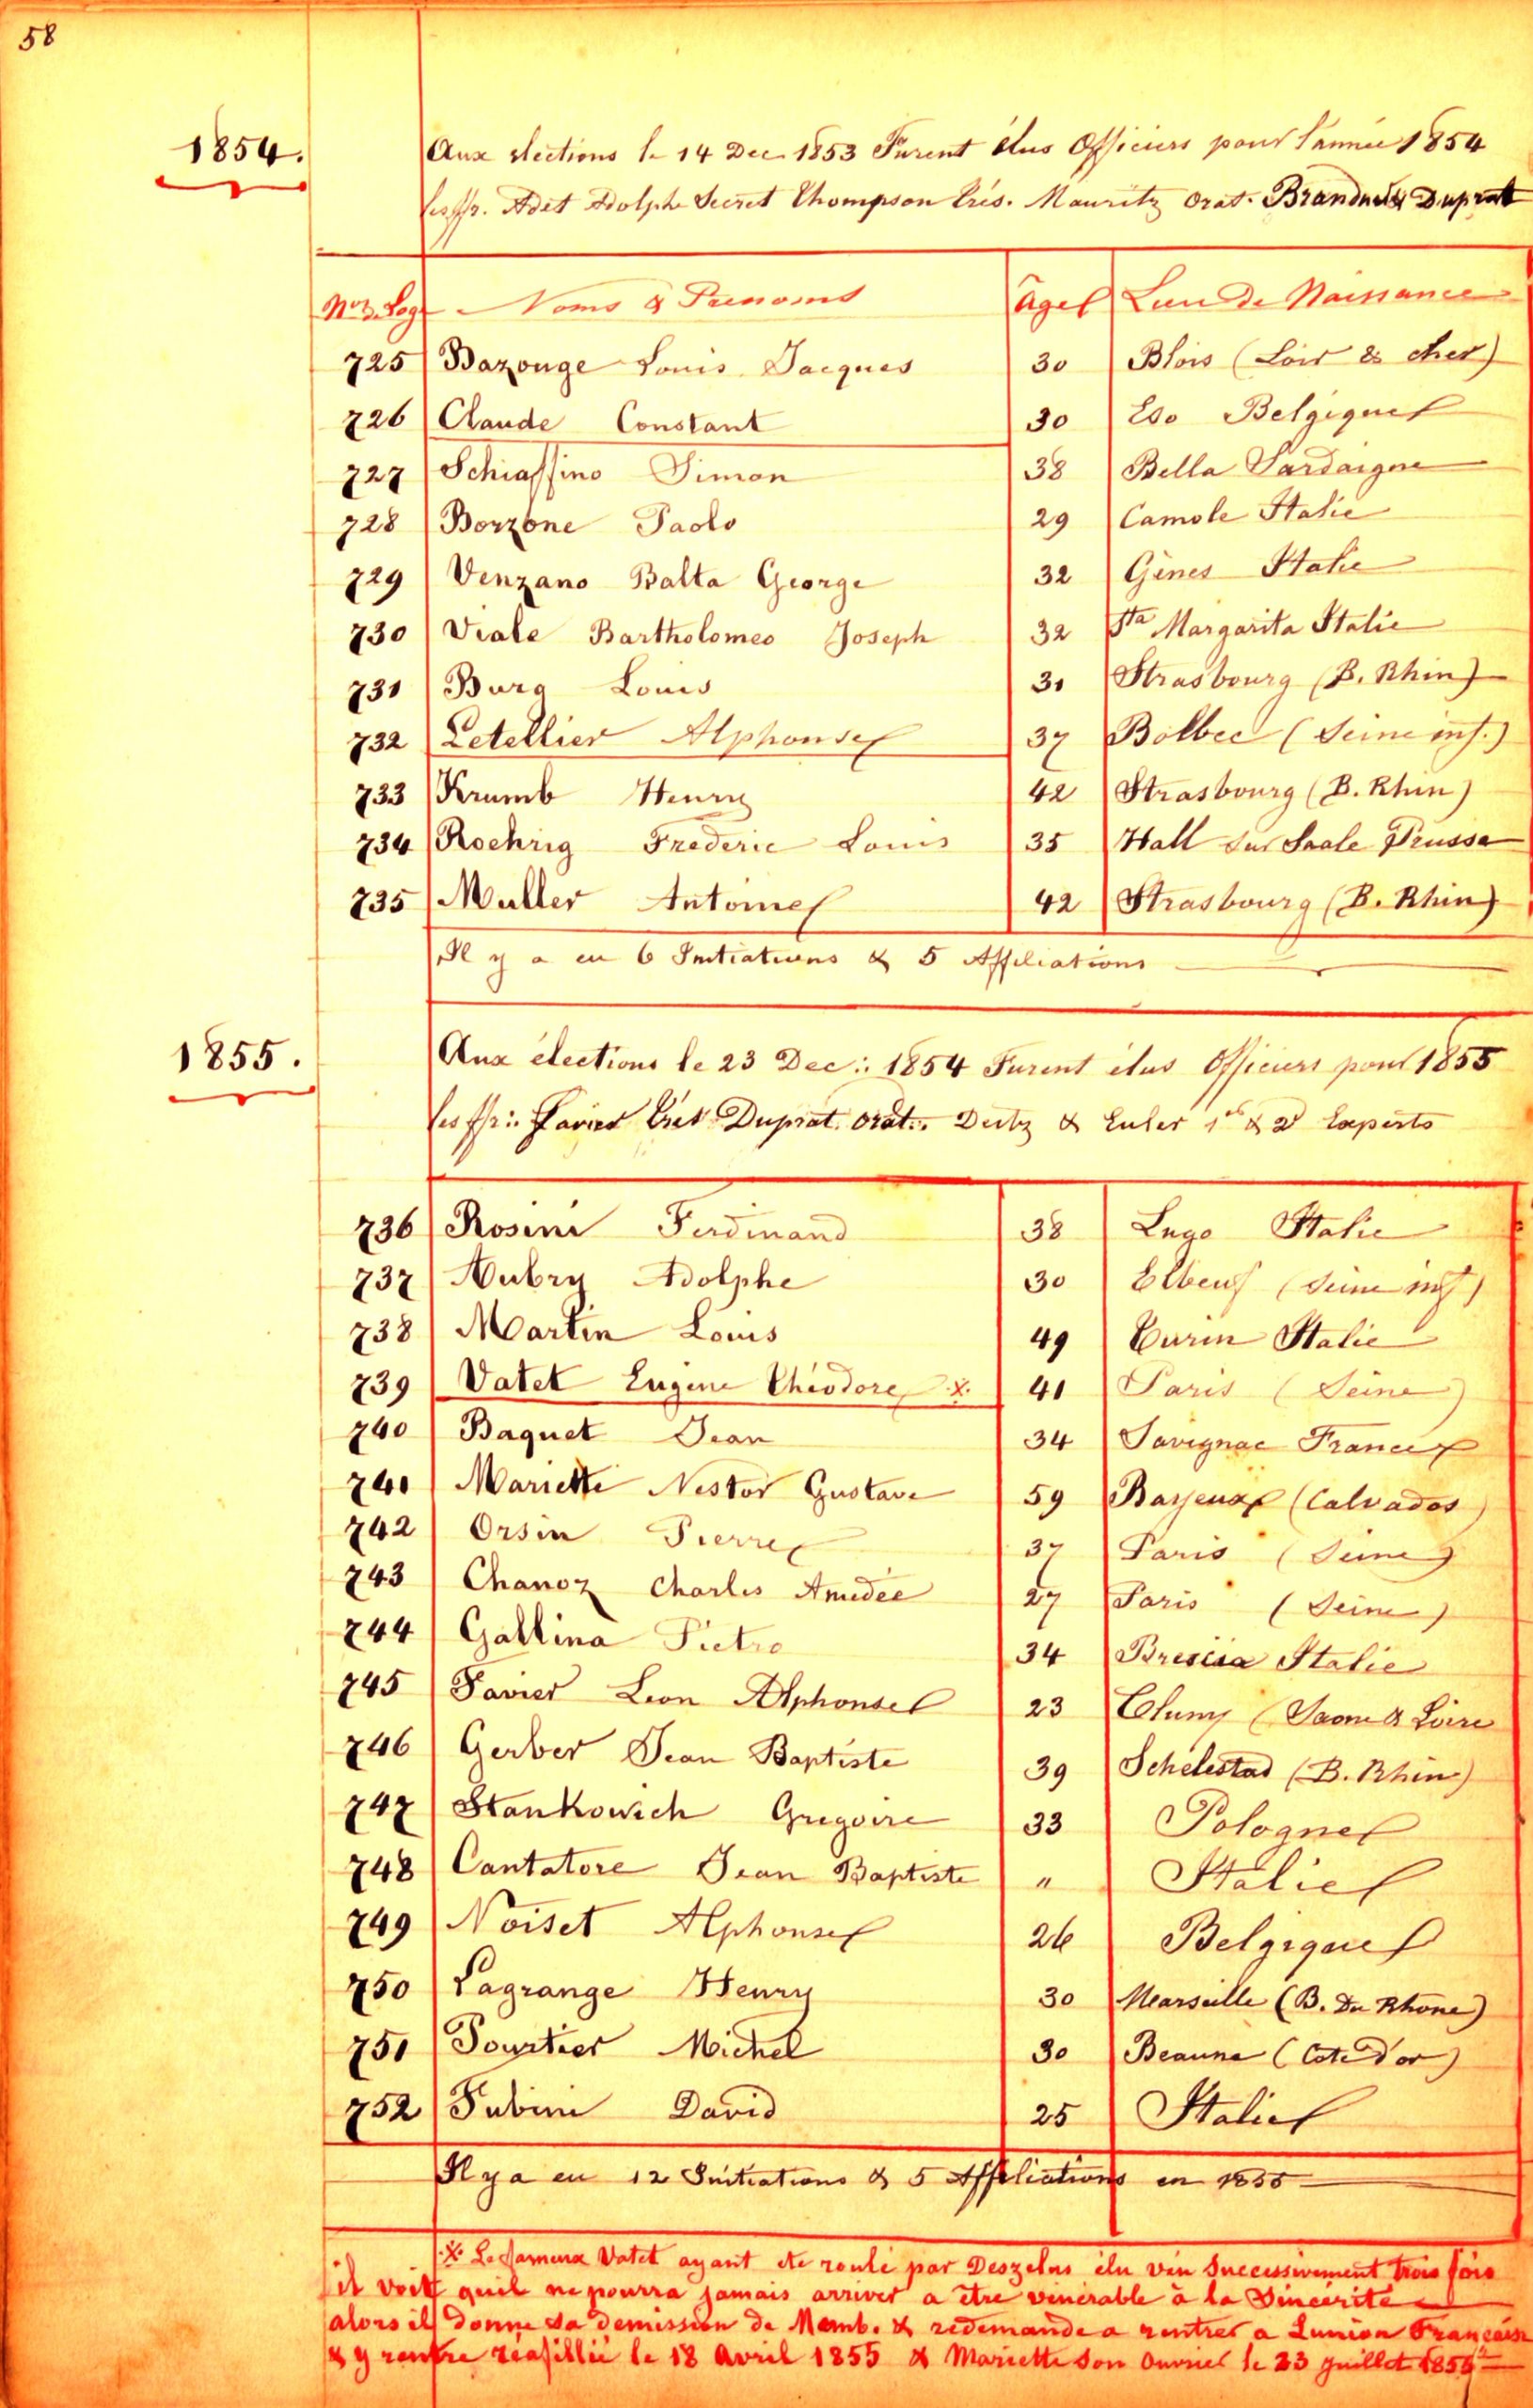 58
1854.
Aux elections le 14 Dec 1853 Furent élus Officiers pour l'année 1854
les ff. Adet Adolphe Secret Thompson Trés. Mauritz Orat. & Duprat
Nos. Log Noms & Prenoms Âge Lieu de Naissance
725 Bazouge Louis Jacques 30 Blois (Loir & cher)
726 Claude Constant 30 Eso Belgique
727 Schiaffino Simon 38 Bella Sardaigne
728 Borzone Paolo 29 Camole Italie
729 Venzano Balta George 32 Gènes Italie
730 Viale Bartholomeo Joseph 32 Sta Margarita Italie
731 Burg Louis 31 Strasbourg (B. Rhin)
732 Letellier Alphonse 37 Bolbec (Seine inf.)
733 Krumb Henry 42 Strasbourg (B. Rhin)
734 Roehrig Frederic Louis 35 Hall sur Saale Prusse
735 Muller Antoine 42 Strasbourg (B. Rhin)
Il y a eu 6 Initiations & 5 Affiliations
1855.
Aux élections le 23 Dec: 1854 Furent élus Officiers pour 1855
les ff: Favier Trés. Duprat. Orat. Deitz & Euler 1er & 2d Experts
736 Rosini Ferdinand 38 Lugo Italie
737 Aubry Adolphe 30 Elbeuf (Seine inf)
738 Martin Louis 49 Turin Italie
739 Vatet Eugène Théodore .x. 41 Paris (Seine)
740 Baquet Jean 34 Savignac France
741 Mariette Nestor Gustave 59 Bayeux (Calvados)
742 Orsin Pierre 37 Paris (Seine)
743 Chanoz Charles Amedée 27 Paris (Seine)
744 Gallina Pietro 34 Brescia Italie
745 Favier Leon Alphonse 23 Cluny (Saone & Loire
746 Gerber Jean Baptiste 39 Schelestad (B. Rhin)
747 Stankowich Gregoire 33 Pologne
748 Cantatore Jean Baptiste " Italie
749 Noiset Alphonse 26 Belgique
750 Lagrange Henry 30 Marseille (B. Du Rhone)
751 Pourtier Michel 30 Beaune (Cote d'or)
752 Fubini David 25 Italie
Il y a eu 12 Initiations & 5 Affiliations en 1855
.x. Le fameux Vatet ayant ete roulé par Deszelus élu vén successivement trois fois
il voit quil ne pourra jamais arriver a être vénérable à la Sincérité
alors il donne sa demission de Memb. & redemande a rentrer a Lunion Française
& y rentre réafillié le 18 Avril 1855 & Mariette son ouvrier le 23 juillet 1855